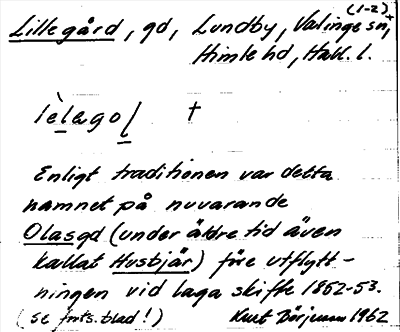 (1-2)
Lillegård, gd, Lundby, Valinge sn,
Himle hd, Hall. l.
lèlago †
Enligt traditionen var detta
namnet på nuvarande
Olasgd (under äldre tid även
kallat Husbjär) före utflytt-
ningen vid laga skifte 1852-53.
(se forts. blad!) Kurt Börjesson 1962